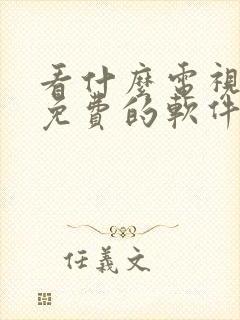 看什麼電視
免費的軟件
任義文